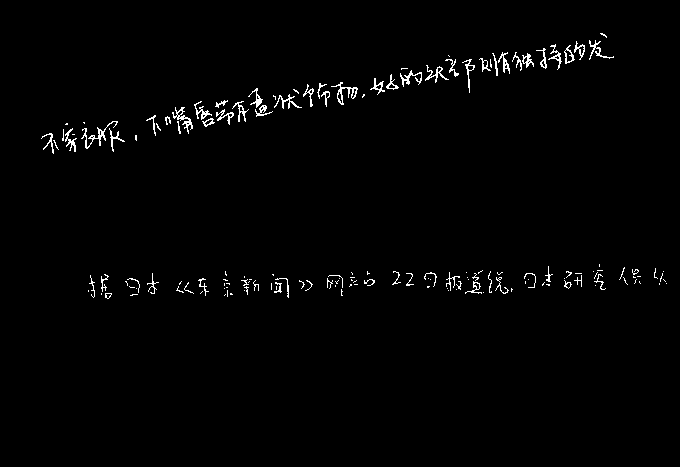 不穿衣服，下嘴唇带有盘状饰物，她的头部则有独特的发
据日本《东京新闻》网站22日报道说，日本研究人员从